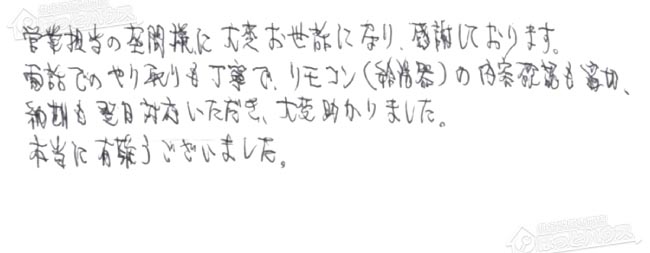 営業担当の座間様に大変お世話になり、感謝しております。
電話でのやり取りも丁寧で、リモコン(給湯器)の内容確認も適切、
納期も翌日対応いただき、大変助かりました。
本当に有難うございました。